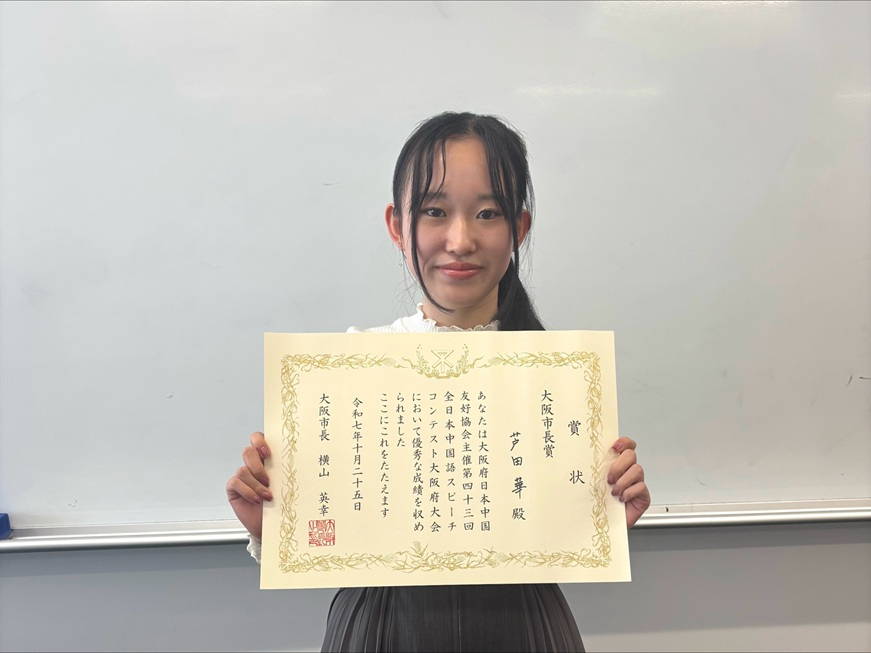 賞状
大阪市長賞
芦田華殿
あなたは大阪府日本中国
友好協会主催第四十三回
全日本中国語スピーチ
コンテスト大阪府大会
において優秀な成績を収め
られました
ここにこれをたたえます
令和七年十月二十五日
大阪市長 横山英幸